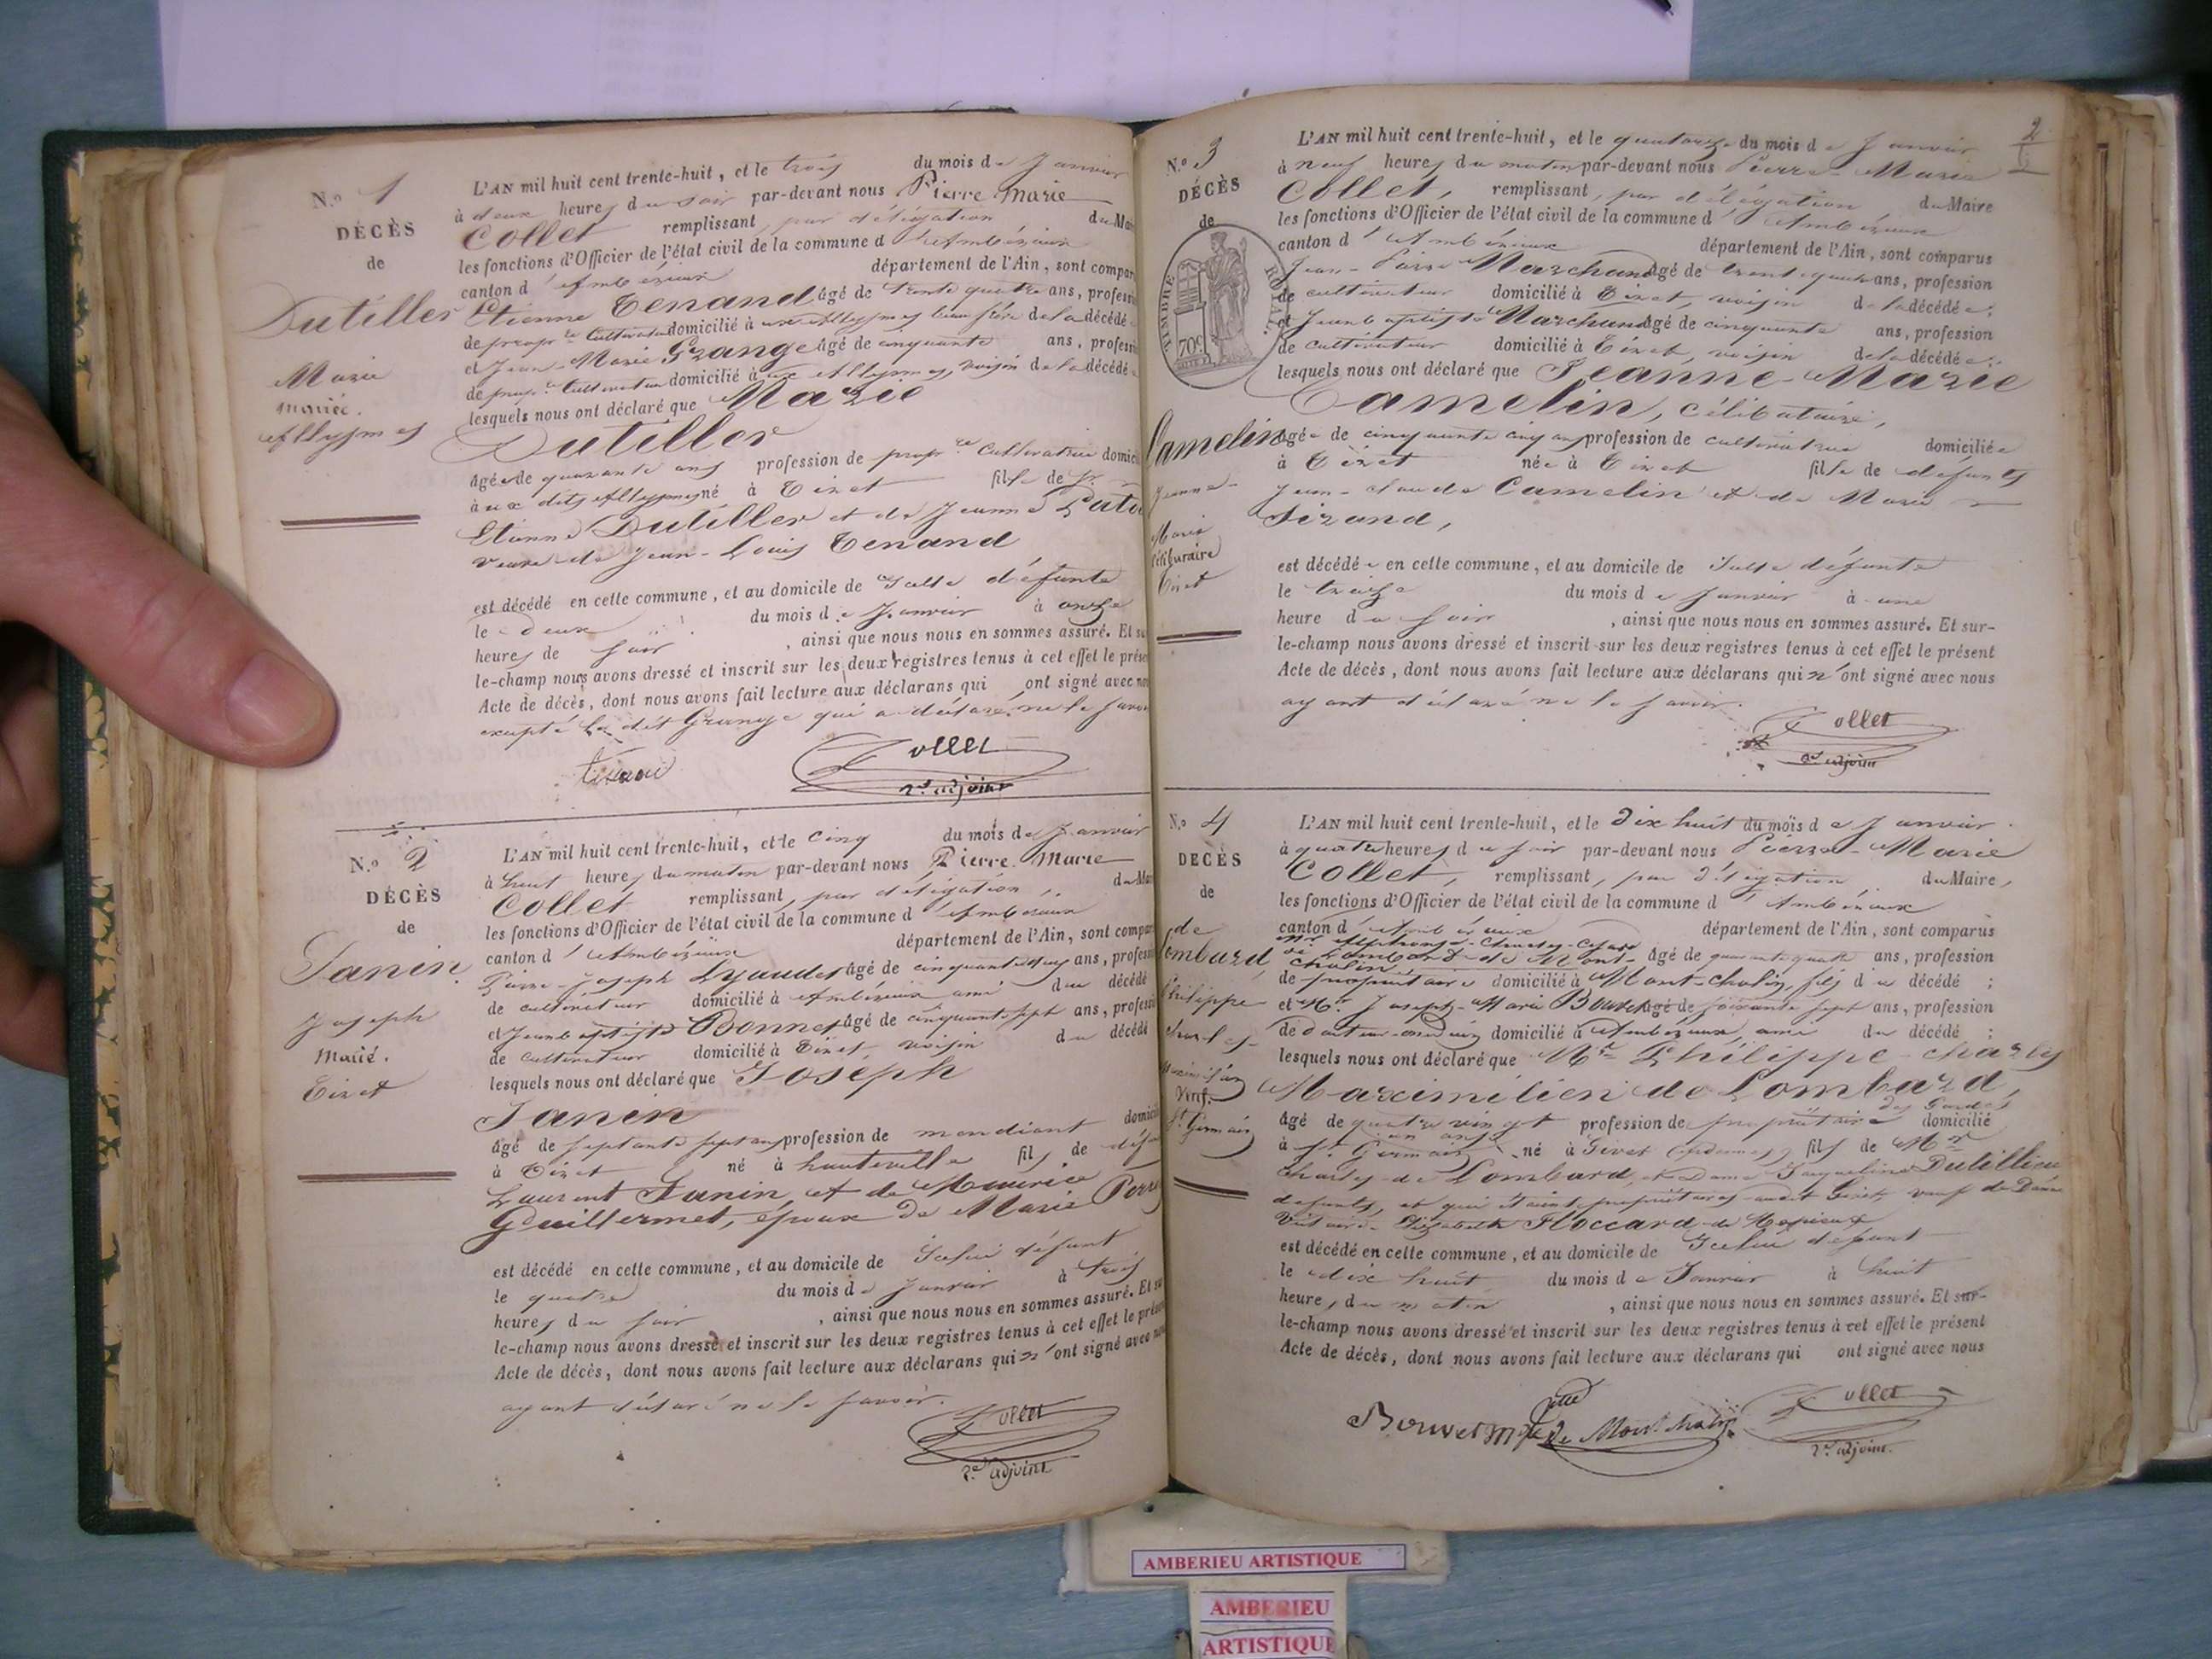 N.º 1
DÉCÈS
de
Dutiller
Marie
mariée.
Allymes
L'AN mil huit cent trente-huit, et le trois du mois de Janvier
à deux heures du soir par-devant nous Pierre Marie
Collet remplissant, par délégation du Mai
les fonctions d'Officier de l'état civil de la commune d'Ambérieux
canton d'Ambérieux département de l'Ain, sont compar
Etienne Tenand âgé de trente quatre ans, profess
de propre Cultivateur domicilié à aux Allymes beau frère de la décédée
et Jean-Marie Grange âgé de cinquante ans, profess
de propre Cultivateur domicilié à aux Allymes, voisin de la décédée
lesquels nous ont déclaré que Marie
Dutiller
âgée de quarante ans profession de propre Cultivatrice domici
à aux dits Allymes né à Tiret fille de
Etienne Dutiller et de Jeanne
veuve de Jean-Louis Tenand
est décédé en cette commune, et au domicile de Icelle défunte
le deux du mois de Janvier à onze
heures de soir, ainsi que nous nous en sommes assuré. Et su
le-champ nous avons dressé et inscrit sur les deux registres tenus à cet effet le prése
Acte de décès, dont nous avons fait lecture aux déclarans qui ont signé avec no
excepté le dit Grange qui a déclaré ne le savoir
Collet
2e adjoint
N.º 2
DÉCÈS
de
Janin
Joseph
Marié.
Tiret
L'AN mil huit cent trente-huit, et le cinq du mois de Janvier
à huit heures du matin par-devant nous Pierre Marie
Collet remplissant, par délégation, du Mai
les fonctions d'Officier de l'état civil de la commune d'Ambérieux
canton d'Ambérieux département de l'Ain, sont compar
Pierre-Joseph Lyaudet âgé de cinquante ans, profess
de cultivateur domicilié à Ambérieux ami du décédé
et Jean Baptiste Bonnet âgé de cinquante sept ans, profess
de cultivateur domicilié à Tiret, voisin du décédé
lesquels nous ont déclaré que Joseph
Janin
âgé de septante sept ans profession de mendiant domici
à Tiret né à hauteville fils de déf
Laurent Janin, et de Maurice
Guillermet, époux de Marie Perr
est décédé en cette commune, et au domicile de Icelui défunt
le quatre du mois de Janvier à trois
heures du soir, ainsi que nous nous en sommes assuré. Et su
le-champ nous avons dressé et inscrit sur les deux registres tenus à cet effet le prése
Acte de décès, dont nous avons fait lecture aux déclarans qui n'ont signé avec no
ayant déclaré ne le savoir.
Collet
2e adjoint
2
N.º 3
DÉCÈS
de
TIMBRE ROYAL.
70c
Camelin
Jeanne-
Marie
Célibataire
Tiret
L'AN mil huit cent trente-huit, et le quatorze du mois de Janvier
à neuf heures du matin par-devant nous Pierre-Marie
Collet, remplissant, par délégation du Maire
les fonctions d'Officier de l'état civil de la commune d'Ambérieux
canton d'Ambérieux département de l'Ain, sont comparus
Jean-Pierre Marchand âgé de trente quatre ans, profession
de cultivateur domicilié à Tiret, voisin de la décédée;
et Jean baptiste Marchand âgé de cinquante ans, profession
de cultivateur domicilié à Tiret, voisin de la décédée;
lesquels nous ont déclaré que Jeanne-Marie
Camelin, célibataire,
âgée de cinquante cinq ans profession de cultivatrice domiciliée
à Tiret née à Tiret fille de défunts
Jean-claude Camelin et de Marie
Sirand,
est décédée en cette commune, et au domicile de Icelle défunte
le treize du mois de Janvier à une
heure du soir, ainsi que nous nous en sommes assuré. Et sur-
le-champ nous avons dressé et inscrit sur les deux registres tenus à cet effet le présent
Acte de décès, dont nous avons fait lecture aux déclarans qui n'ont signé avec nous
ayant déclaré ne le savoir.
Collet
2e adjoint
N.º 4
DÉCÈS
de
de
Lombard
Philippe
Charles-
Maximilien
Veuf.
St Germain
L'AN mil huit cent trente-huit, et le Dix huit du mois de Janvier
à quatre heures du soir par-devant nous Pierre-Marie
Collet, remplissant, par délégation du Maire,
les fonctions d'Officier de l'état civil de la commune d'Ambérieux
canton d'Ambérieux département de l'Ain, sont comparus
Mr Alphonse-Charles-César
de Lombard de Mont- âgé de quarante quatre ans, profession
chalin
de propriétaire domicilié à Mont-chalin, fils du décédé;
et Mr. Joseph-Marie Bouvet âgé de soixante sept ans, profession
de docteur-médecin domicilié à Ambérieux, ami du décédé;
lesquels nous ont déclaré que Mr Philippe-charles
Maximilien de Lombard,
âgé de quatre vingt profession de propriétaire domicilié
un ans
à St. Germain, né à Givet (Ardennes) fils de Mr
Charles de Lombard, et Dame Jacqueline Dutillieu
défunts, et qui étaient propriétaires audit Givet, veuf de Dame
Elizabeth Floccard de Mépieux
est décédé en cette commune, et au domicile de Icelui défunt
le dix huit du mois de Janvier à huit
heures du matin, ainsi que nous nous en sommes assuré. Et sur-
le-champ nous avons dressé et inscrit sur les deux registres tenus à cet effet le présent
Acte de décès, dont nous avons fait lecture aux déclarans qui ont signé avec nous
Bouvet De Montchalin Collet
2e adjoint.
AMBERIEU ARTISTIQUE
AMBERIEU
ARTISTIQUE